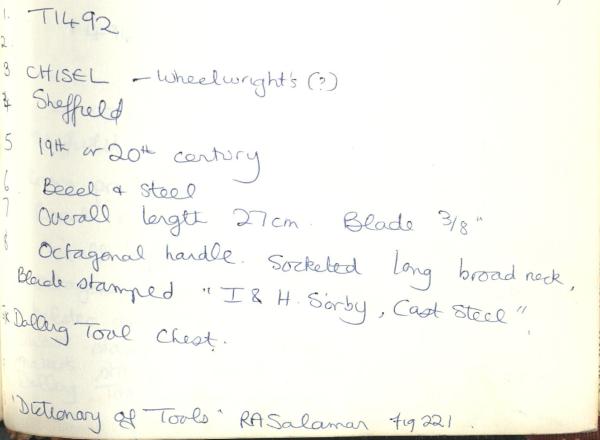 1. T1492
2.
3 CHISEL - Wheelwright's (?)
4 Sheffield
5 19th or 20th century
6 Beeel & Steel
7 Overall length 27cm. Blade 3/8"
8 Octagonal handle. Socketed long broad neck,
Blade stamped "I & H. Sorby, Cast Steel".
Ex Dalling Tool Chest.
'Dictionary of Tools' RA Salaman fig 221.